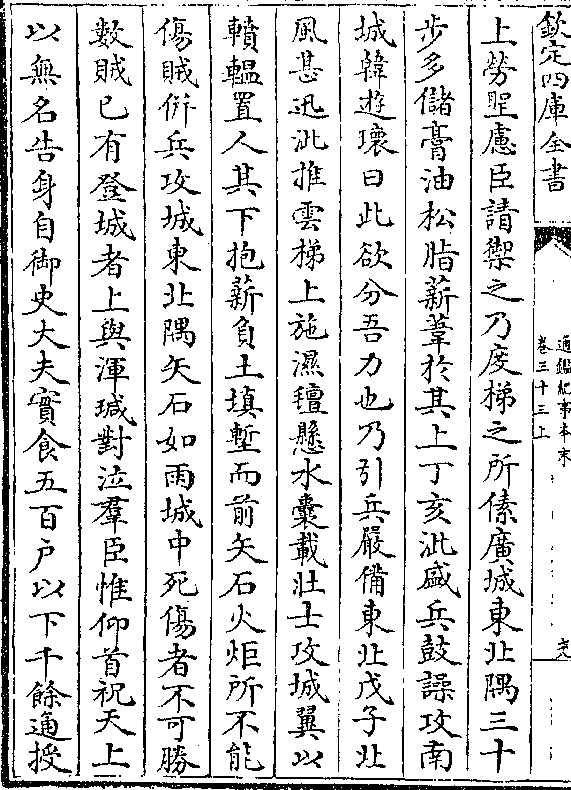 欽定四庫全書
通鑑紀事本末
卷三十三上
上勞聖慮臣請禦之乃度梯之所傃廣城東北隅三十
步多儲膏油松脂薪葦於其上丁亥泚盛兵鼓譟攻南
城韓遊瓌曰此欲分吾力也乃引兵嚴備東北戊子北
風甚迅泚推雲梯上施濕氊懸水囊載壯士攻城翼以
轒轀置人其下抱薪負土填塹而前矢石火炬所不能
傷賊併兵攻城東北隅矢石如雨城中死傷者不可勝
數賊已有登城者上與渾瑊對泣羣臣惟仰首祝天上
以無名告身自御史大夫實食五百户以下千餘通授